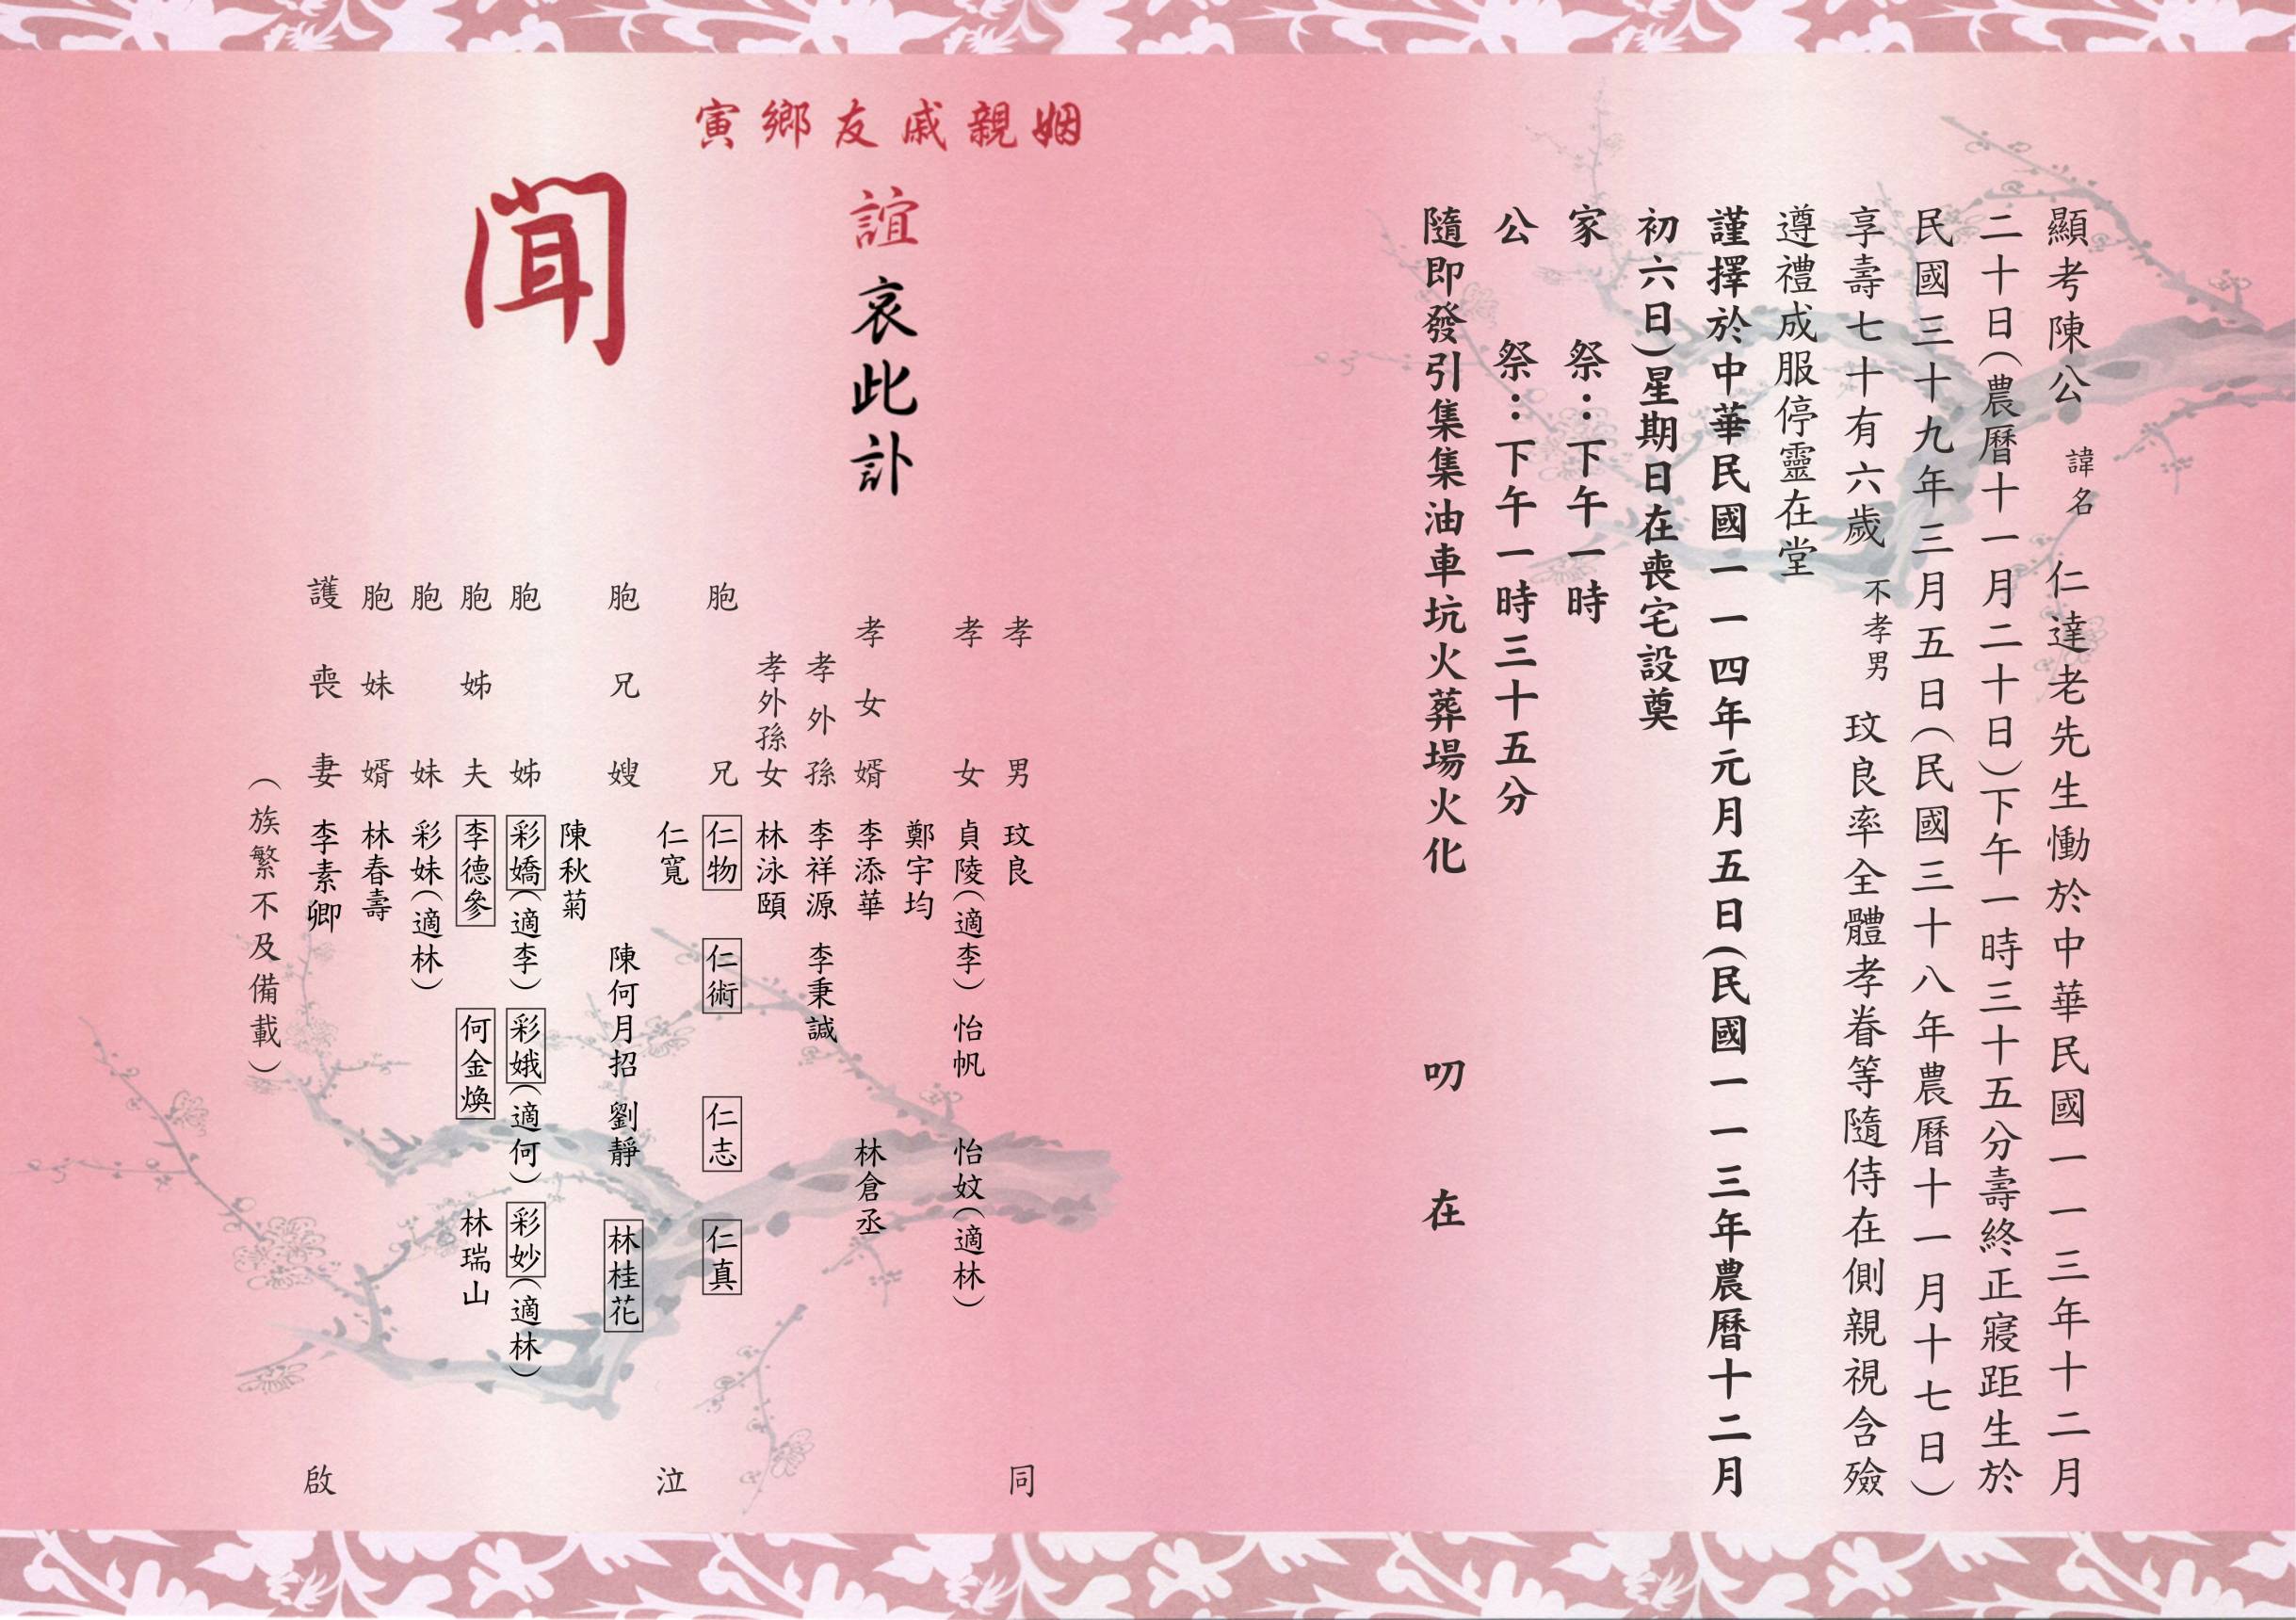 顯考陳公 諱名 仁達老先生慟於中華民國一一三年十二月
二十日(農曆十一月二十日)下午一時三十五分壽終正寢距生於
民國三十九年三月五日(民國三十八年農曆十一月十七日)
享壽七十有六歲 不孝男 玟良率全體孝眷等隨侍在側親視含殮
遵禮成服停靈在堂
謹擇於中華民國一一四年元月五日(民國一一三年農曆十二月
初六日)星期日在喪宅設奠
家 祭：下午一時
公 祭：下午一時三十五分
隨即發引集集油車坑火葬場火化 叨 在
姻親戚友鄉寅
誼哀此訃
聞
孝男 玟良
孝女 貞陵(適李) 怡帆 怡妏(適林)
鄭宇均
孝女婿 李添華 林倉丞
孝外孫 李祥源 李秉諴
孝外孫女 林泳頤
胞兄 仁物 仁術 仁志 仁真
仁寬
胞兄嫂 陳何月招 劉靜 林桂花
陳秋菊
胞姊 彩嬌(適李) 彩娥(適何) 彩妙(適林)
胞姊夫 李德參 何金煥 林瑞山
胞妹 彩妹(適林)
胞妹婿 林春壽
護喪妻 李素卿
(族繁不及備載)
同 泣 啟